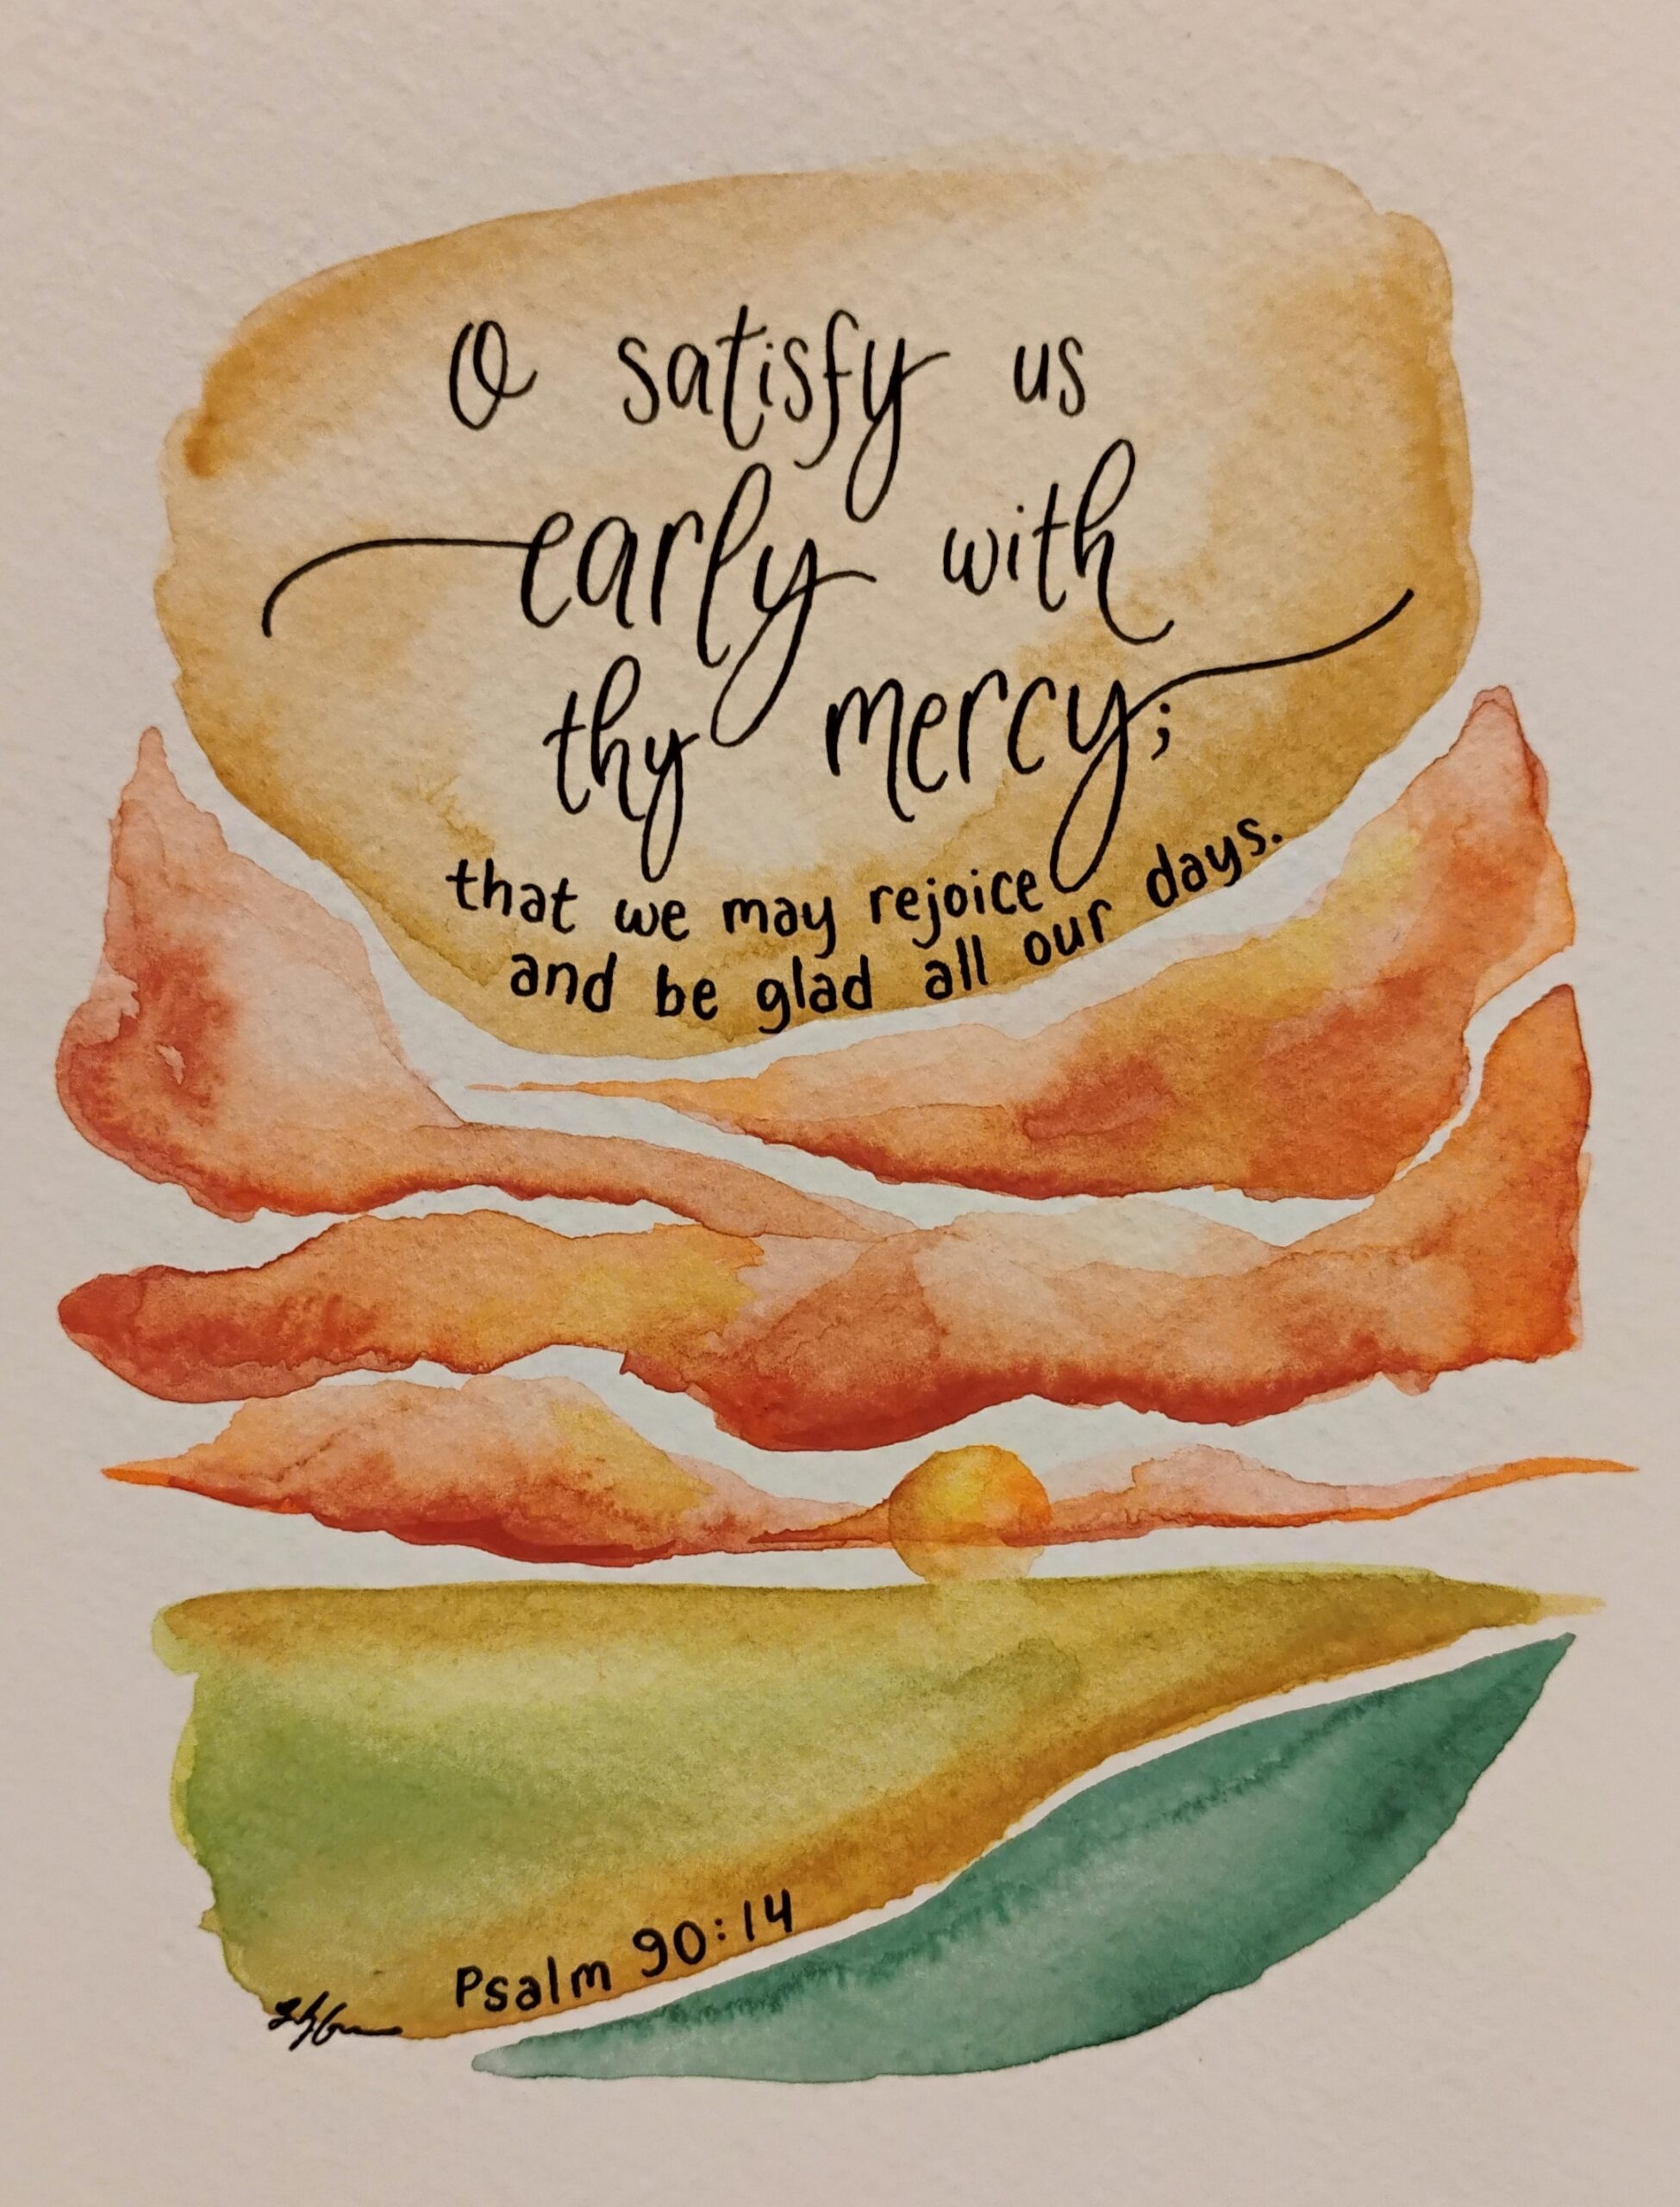 O satisfy us
early with
thy mercy;
that we may rejoice
and be glad all our days.
Psalm 90:14